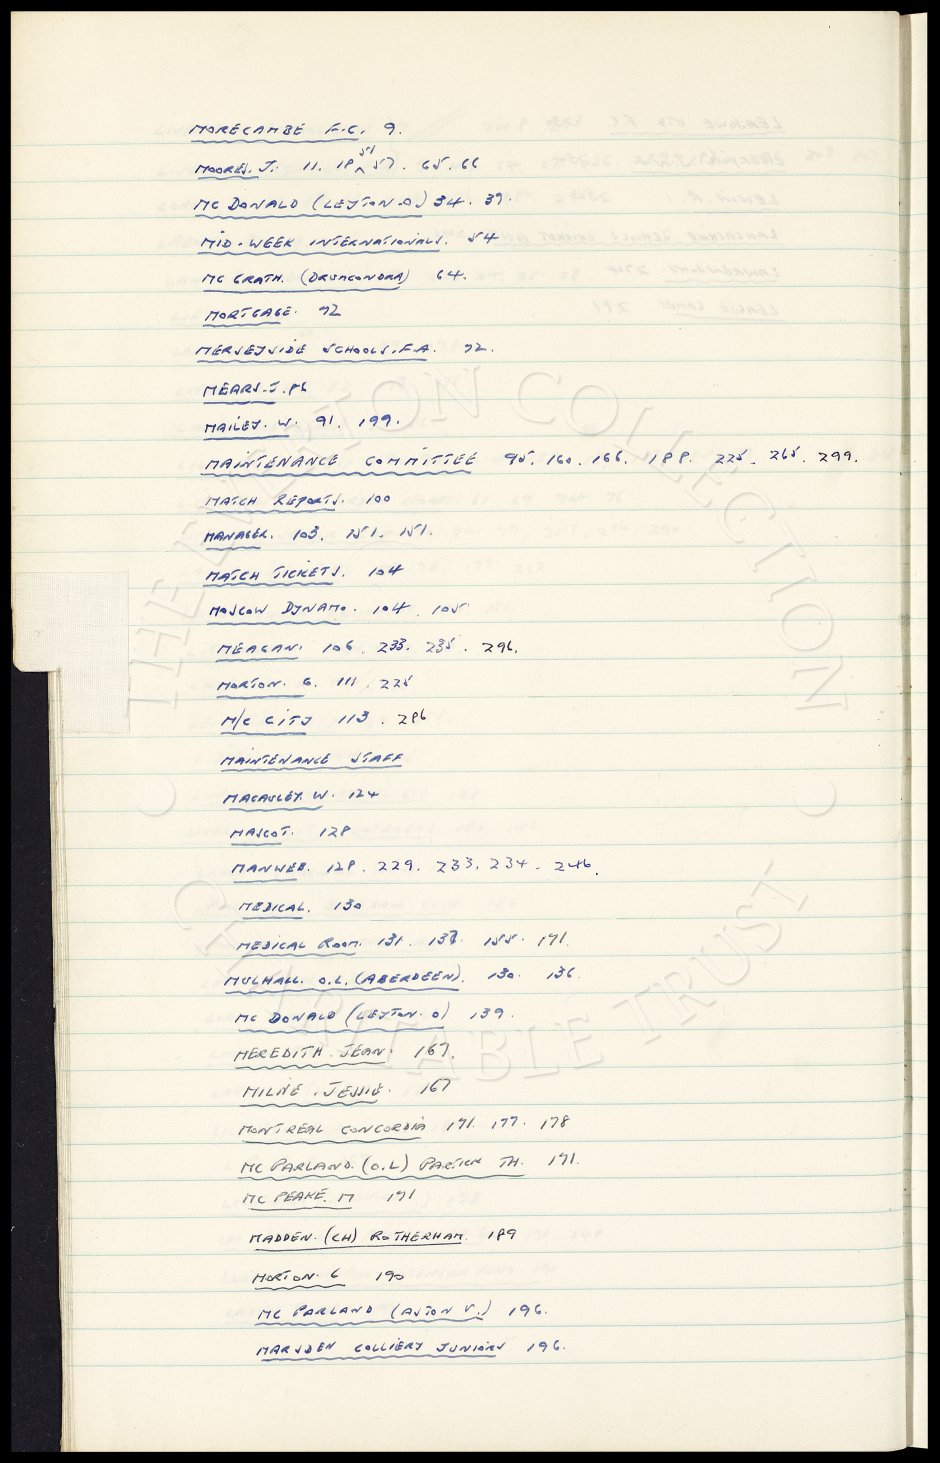 MORECAMBE F.C. 9.
MOORES. J. 11. 18 51 57. 65. 66
MC DONALD (LEYTON O.) 34. 39.
MID-WEEK INTERNATIONALS. 54
MC GRATH. (DRUMCONDRA) 64.
MORTGAGE. 72
MERSEYSIDE SCHOOLS. F.A. 72.
MEARS. J. 86
MAILEY. W. 91. 199.
MAINTENANCE COMMITTEE 95. 160. 166. 188. 225. 265. 299.
MATCH REPORTS. 100
MANAGER. 103. 151. 151.
MATCH TICKETS. 104
MOSCOW DYNAMO. 104. 105
MEAGAN. 106. 233. 235. 296.
MORTON. G. 111. 225
M/C CITY 113. 286
MAINTENANCE STAFF
MACAULEY. W. 124
MASCOT. 128
MANWEB. 128. 229. 233. 234. 246.
MEDICAL. 130
MEDICAL ROOM. 131. 138. 155. 171.
MULHALL. O.L. (ABERDEEN). 130. 136.
MC DONALD (LEYTON. O) 139.
MEREDITH. JEAN. 167.
MILNE. JESSIE. 167
MONTREAL CONCORDIA 171. 177. 178
MC PARLAND. (O.L) PARTICK TH. 171.
MC PEAKE. M 171
MADDEN. (CH) ROTHERHAM. 189
MORTON. G 190
MC PARLAND (ASTON V.) 196.
MARSDEN COLLIERY JUNIORS 196.
THE EVERTON COLLECTION
CHARITABLE TRUST